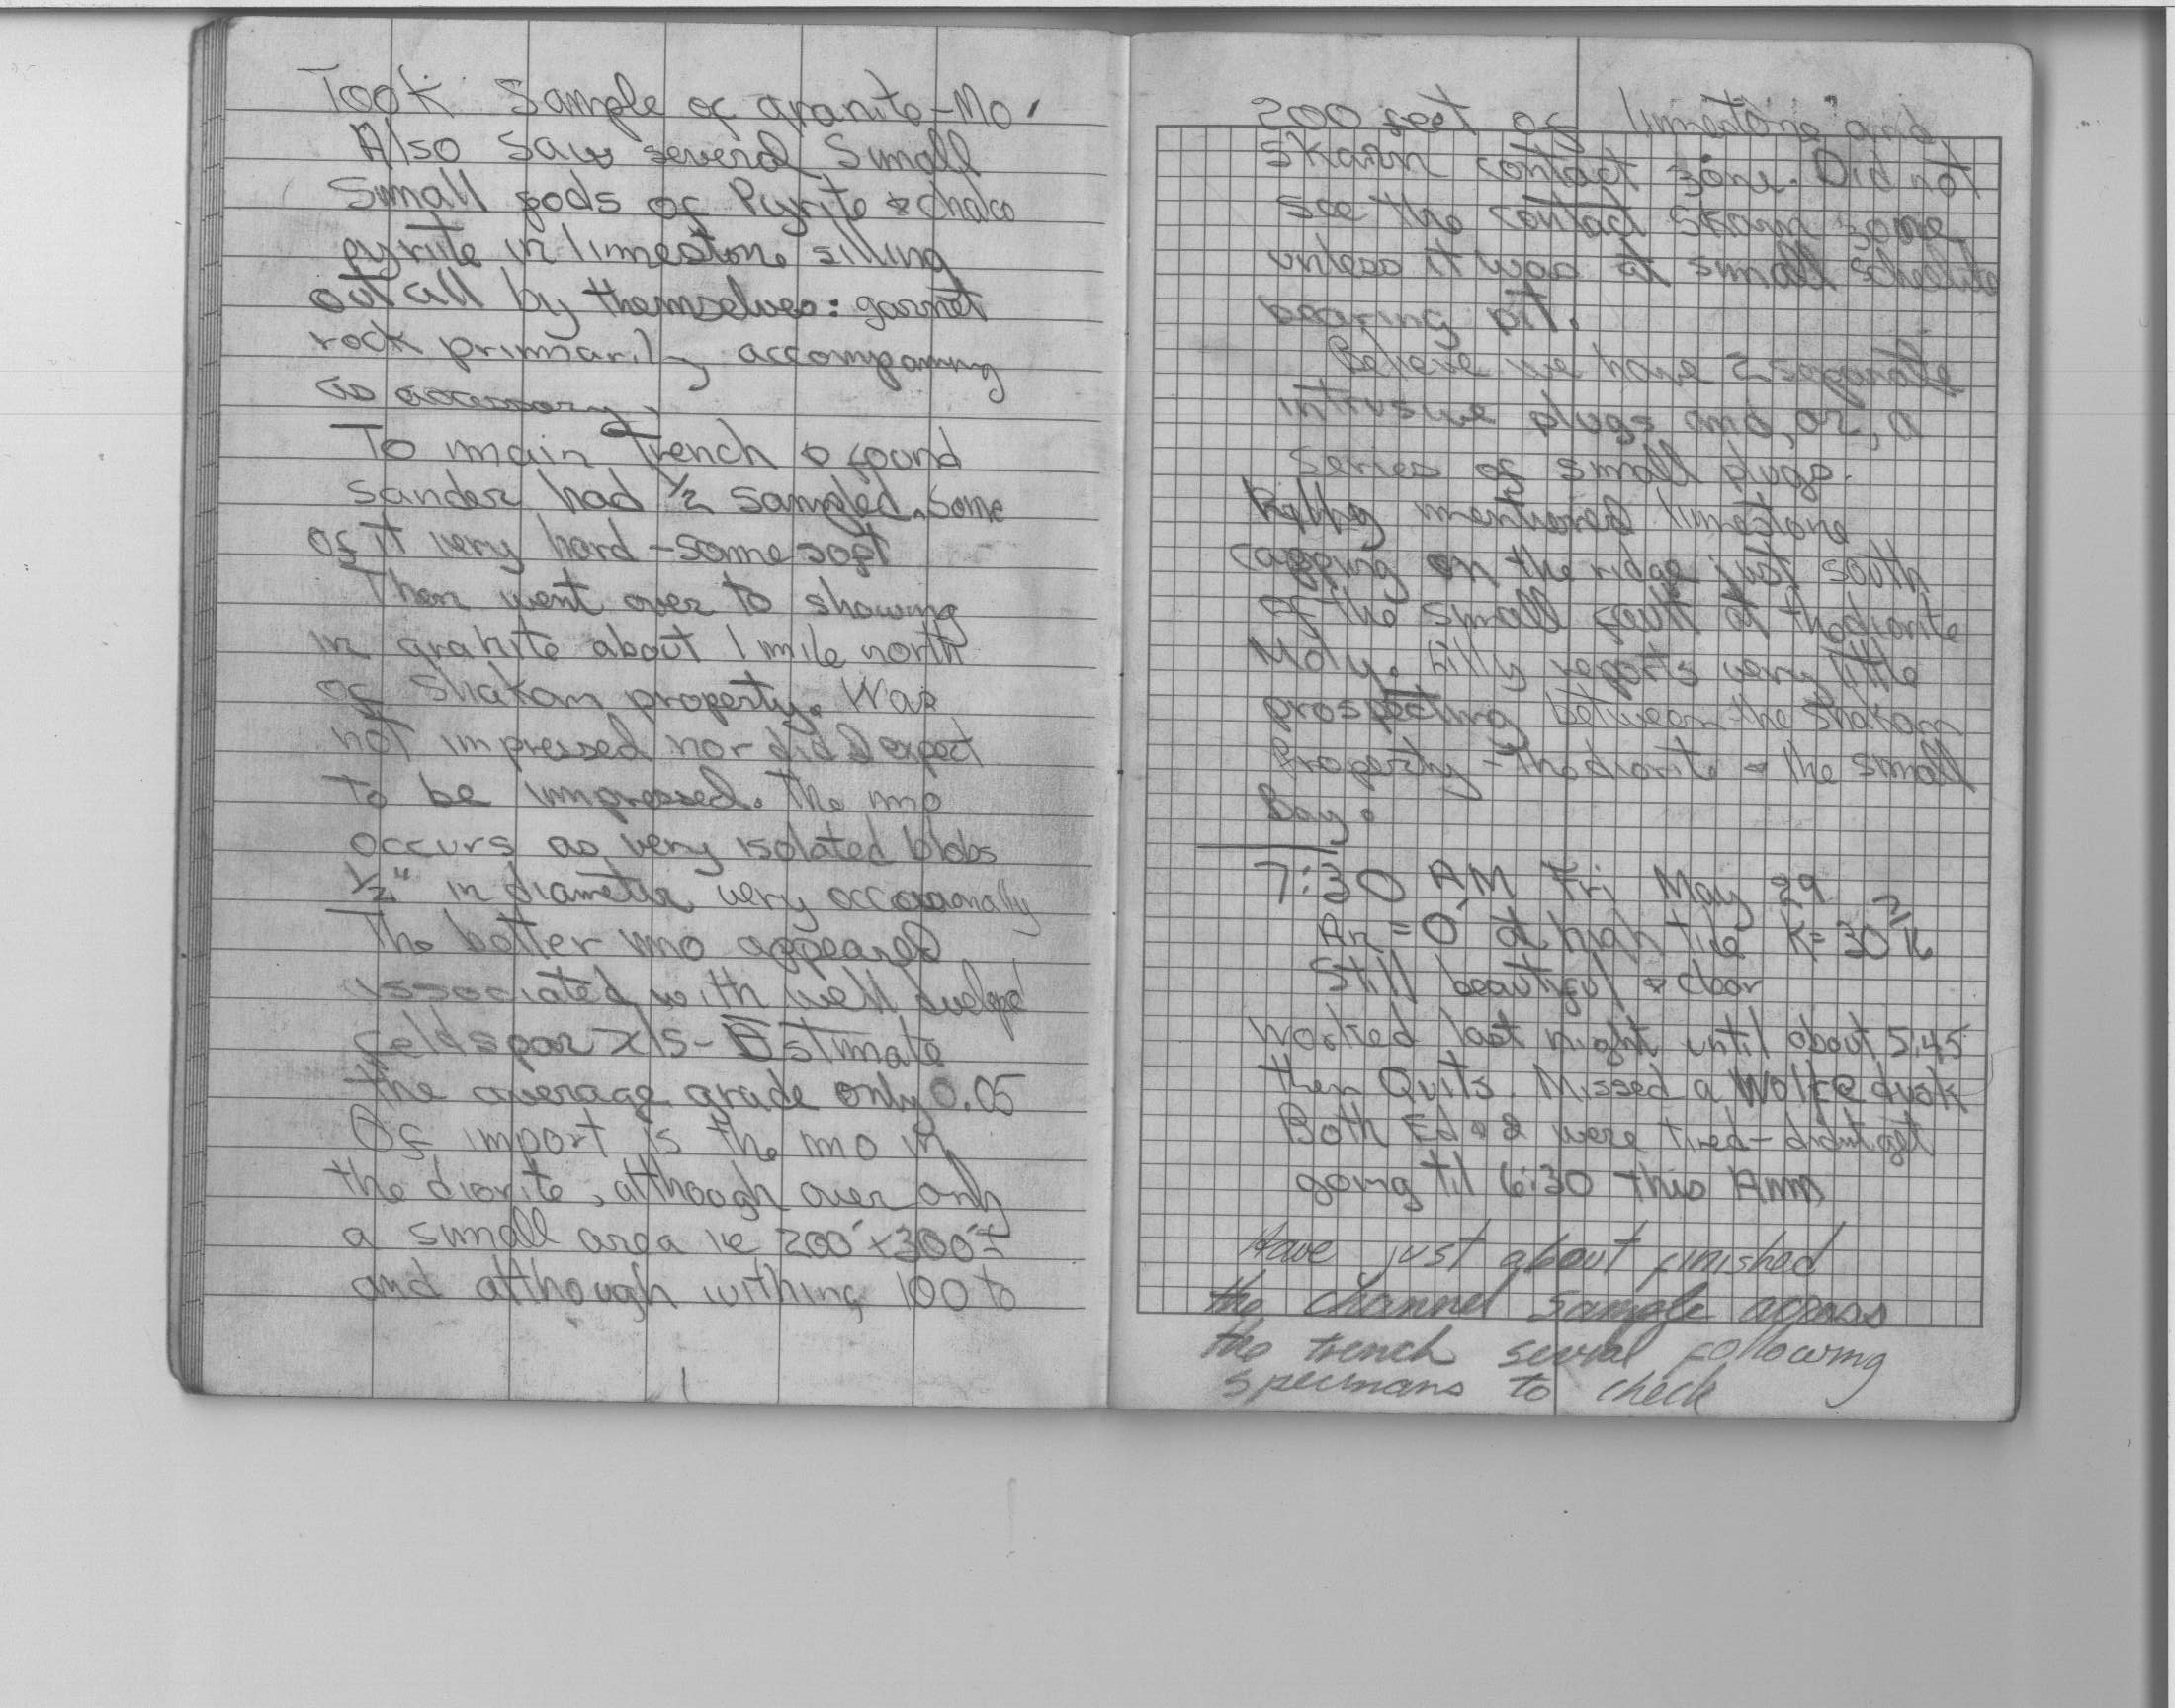 Took Sample of granite-Mo.
Also Saw several Small
Small pods of Pyrite & chalco
pyrite in limestone
out all by themselves: garnet
rock primarily accompaning
as accessory.
To main Trench & found
sander had 1/2 sampled. Some
of it very hard - some soft
Then went over to showing
in granite about 1 mile north
of Shakan property. Was
not impressed nor did I expect
to be impressed. The mo
occurs as very isolated blobs
1/2" in diameter very occasionally
The better mo appeared
associated with well
feldspar xls - Estimate
the average grade only 0.05
Of import is the mo in
the diorite, although over only
a small area ie 200' x 300' ±
and although withing 100 to
200 feet of limestone and
skarn contact zone. Did not
see the contact skarn zone
unless it was at small scheelite
bearing pit.
Believe we have 2 separate
intrusive plugs and, or, a
series of small plugs.
mentioned limestone
capping on the ridge just south
of the small fault at the diorite
Moly. reports very little
prospecting between the Shakan
Property - the diorite & the small
Bay.
7:30 AM Fri May 29
An = 0' at high tide K = 30 2/16
Still beautiful & clear
Worked last night until about 5:45
then Quits. Missed a Wolf @ dusk
Both Ed & I were tired - didnt get
going til 6:30 this Am
Have just about finished
the channel sample across
the trench several following
specmans to check